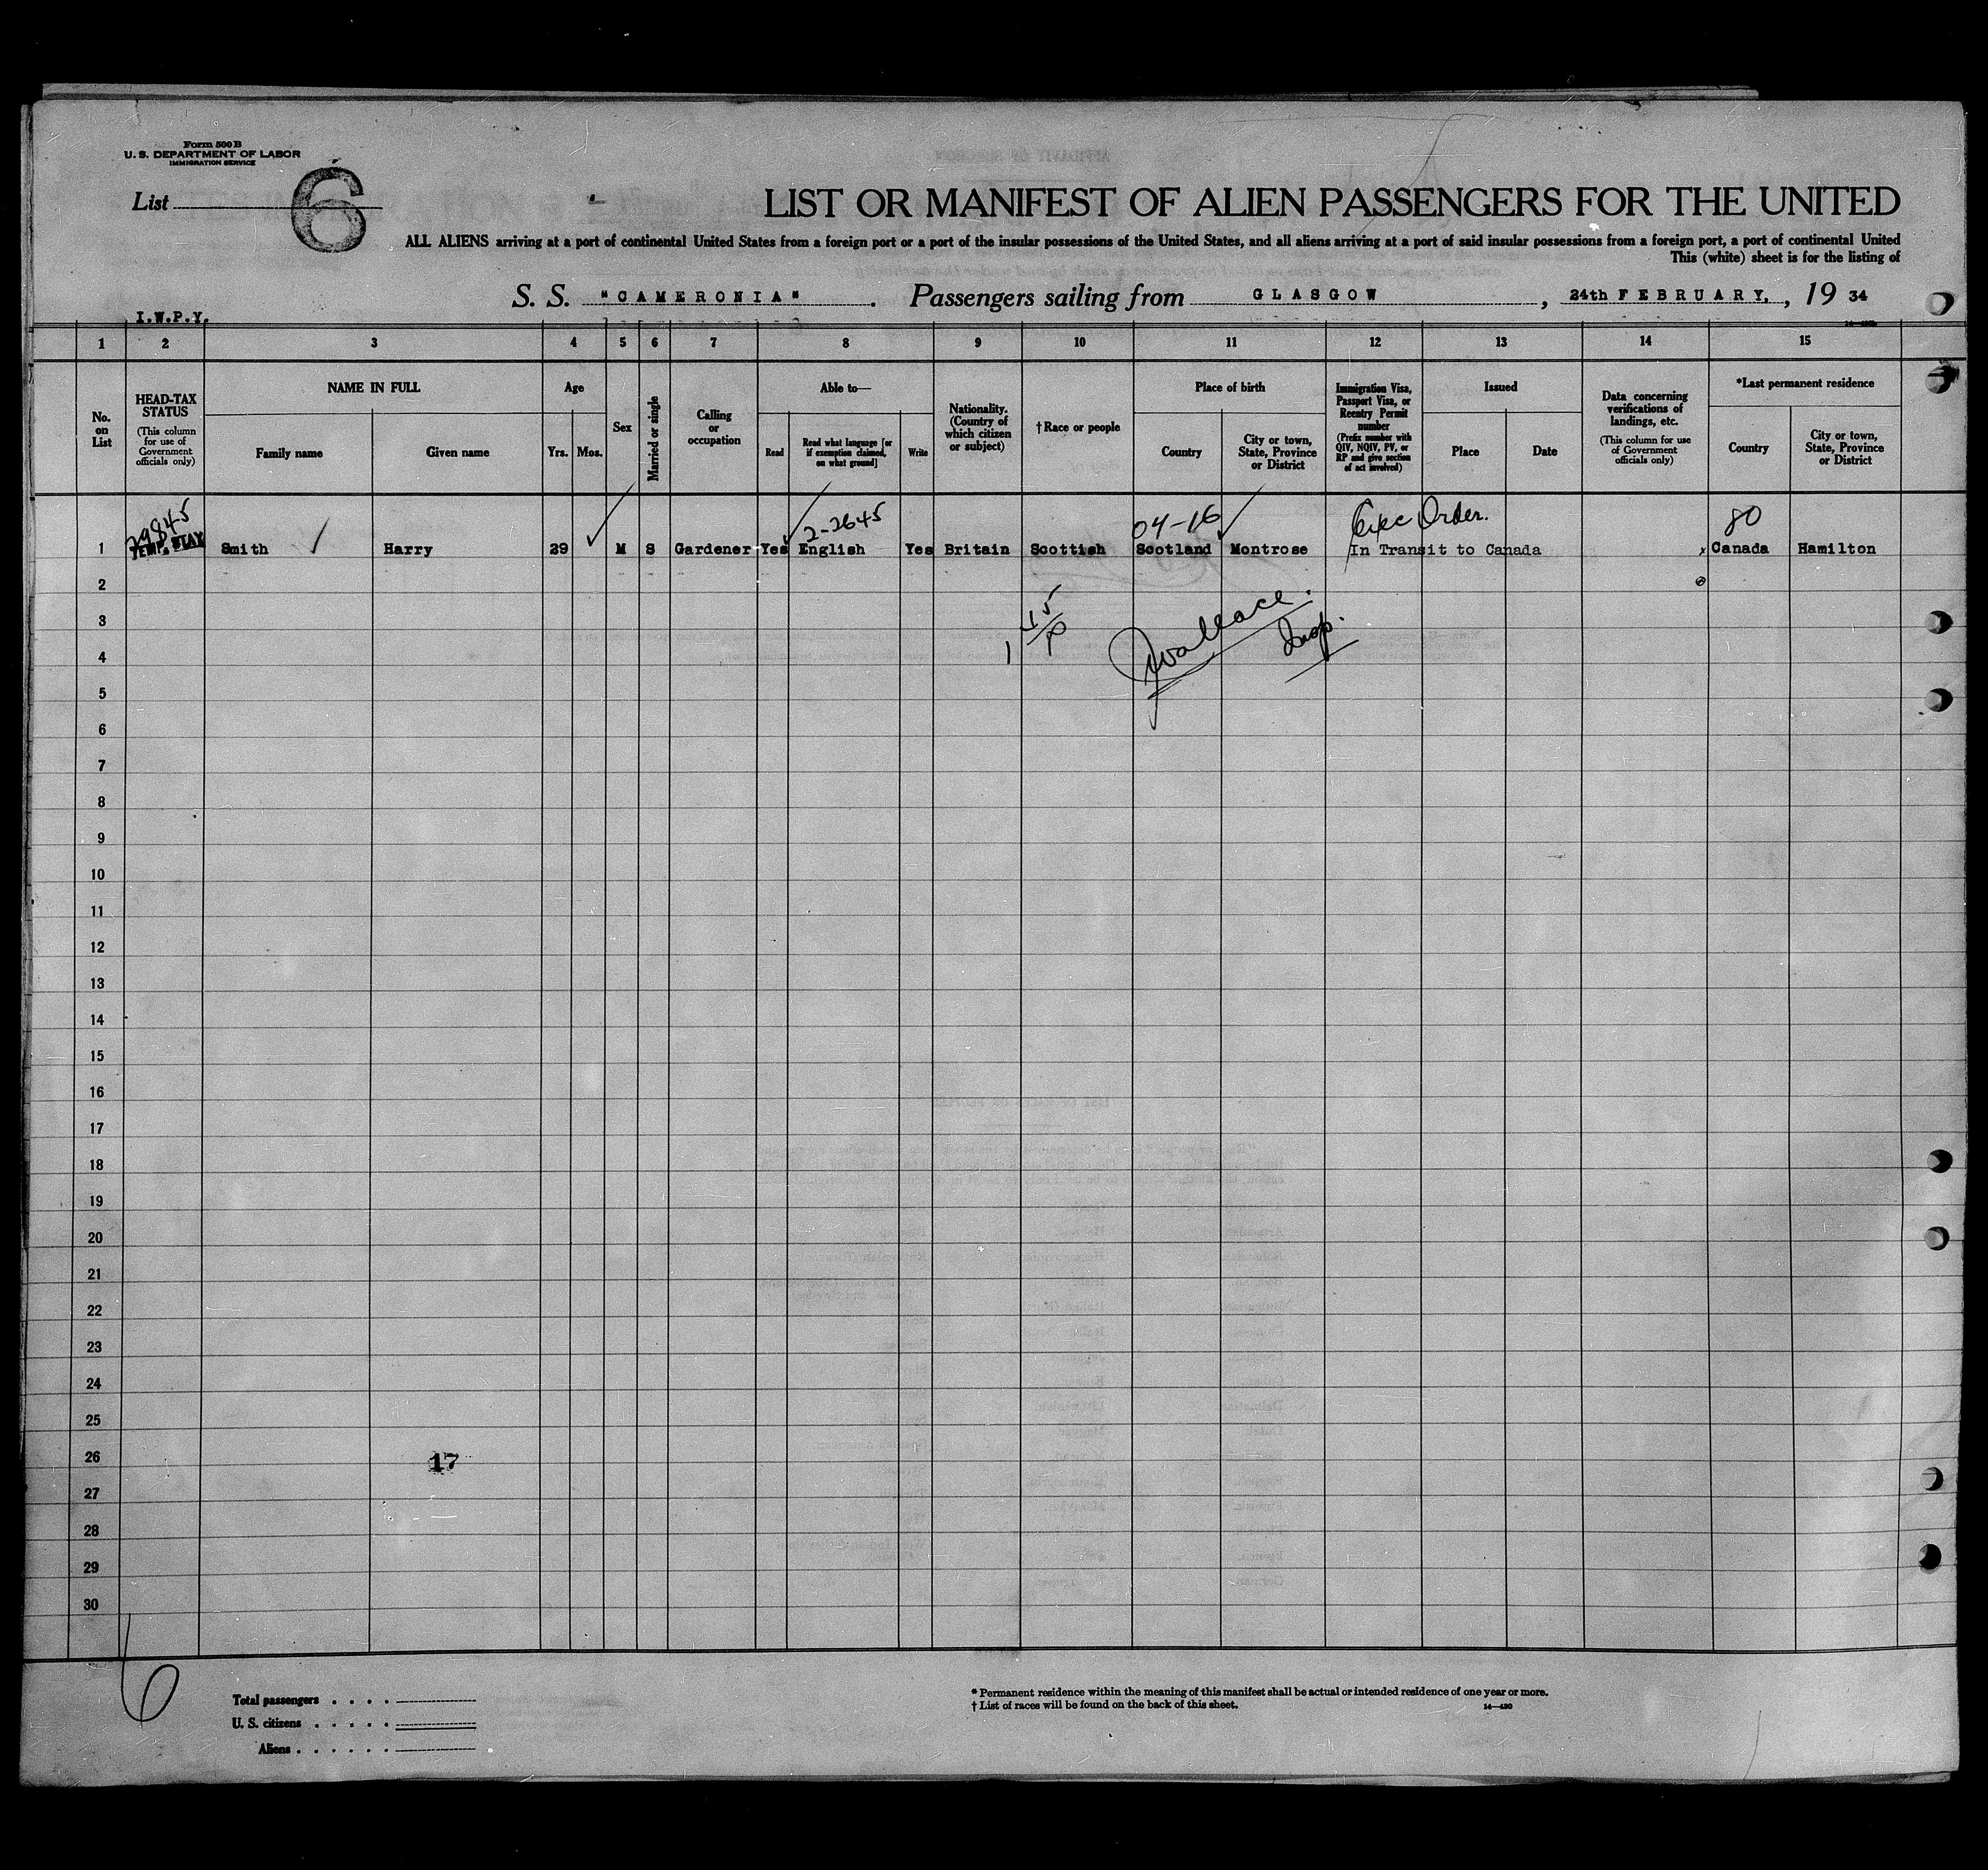 Form 500 B
U. S. DEPARTMENT OF LABOR
IMMIGRATION SERVICE
List 6
LIST OR MANIFEST OF ALIEN PASSENGERS FOR THE UNITED
ALL ALIENS arriving at a port of continental United States from a foreign port or a port of the insular possessions of the United States, and all aliens arriving at a port of said insular possessions from a foreign port, a port of continental United
This (white) sheet is for the listing of
S. S. "CAMERONIA". Passengers sailing from GLASGOW, 24th FEBRUARY, 19 34
I.W.P.Y.
1 2 3 4 5 6 7 8 9 10 11 12 13 14 15
No. on List
HEAD-TAX STATUS (This column for use of Government officials only)
NAME IN FULL
Family name
Given name
Age
Yrs. Mos.
Sex
Married or single
Calling or occupation
Able to—
Read
Read what language [or if exemption claimed, on what ground]
Write
Nationality. (Country of which citizen or subject)
†Race or people
Place of birth
Country
City or town, State, Province or District
Immigration Visa, Passport Visa, or Reentry Permit number (Prefix number with QIV, NQIV, PV, or RP and give section of act involved)
Issued
Place
Date
Data concerning verifications of landings, etc. (This column for use of Government officials only)
*Last permanent residence
Country
City or town, State, Province or District
29845 2-2645 04-16 Exec Order. 80
1 TEMP. STAY Smith Harry 29 M S Gardener Yes English Yes Britain Scottish Scotland Montrose In Transit to Canada x Canada Hamilton
2
3
Wallace. Insp.
4
5
6
7
8
9
10
11
12
13
14
15
16
17
18
19
20
21
22
23
24
25
26 17
27
28
29
30
6
Total passengers . . . .
U. S. citizens . . . . .
Aliens . . . . . .
* Permanent residence within the meaning of this manifest shall be actual or intended residence of one year or more.
† List of races will be found on the back of this sheet.
14—430